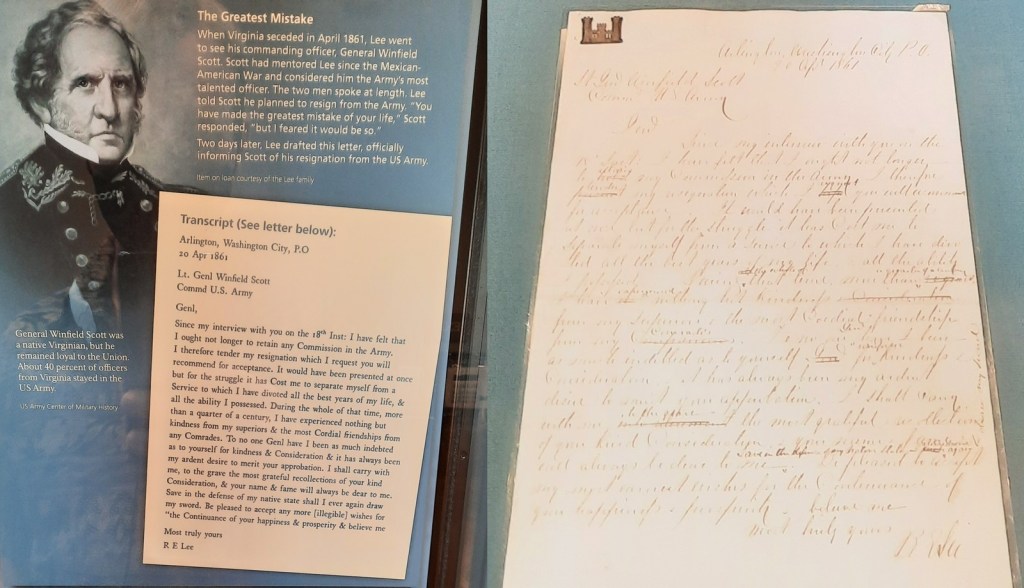 The Greatest Mistake
When Virginia seceded in April 1861, Lee went
to see his commanding officer, General Winfield
Scott. Scott had mentored Lee since the Mexican-
American War and considered him the Army's most
talented officer. The two men spoke at length. Lee
told Scott he planned to resign from the Army. "You
have made the greatest mistake of your life," Scott
responded, "but I feared it would be so."
Two days later, Lee drafted this letter, officially
informing Scott of his resignation from the US Army.
Item on loan courtesy of the Lee family
General Winfield Scott was
a native Virginian, but he
remained loyal to the Union.
About 40 percent of officers
from Virginia stayed in the
US Army.
US Army Center of Military History
Transcript (See letter below):
Arlington, Washington City, P.O
20 Apr 1861
Lt. Genl Winfield Scott
Commd U.S. Army
Genl,
Since my interview with you on the 18th Inst: I have felt that
I ought not longer to retain any Commission in the Army.
I therefore tender my resignation which I request you will
recommend for acceptance. It would have been presented at once
but for the struggle it has Cost me to separate myself from a
Service to which I have divoted all the best years of my life, &
all the ability I possessed. During the whole of that time, more
than a quarter of a century, I have experienced nothing but
kindness from my superiors & the most Cordial friendships from
any Comrades. To no one Genl have I been as much indebted
as to yourself for kindness & Consideration & it has always been
my ardent desire to merit your approbation. I shall carry with
me, to the grave the most grateful recollections of your kind
Consideration, & your name & fame will always be dear to me.
Save in the defense of my native state shall I ever again draw
my sword. Be pleased to accept any more [illegible] wishes for
"the Continuance of your happiness & prosperity & believe me
Most truly yours
R. E Lee
Arlington, Washington City P.O
20 Apr 1861
Lt Genl Winfield Scott
Comm U.S. Army
Genl
Since my interview with you on the
I have felt that I ought not longer
to my Commission in the Army I therefore
my resignation which I you will recommend
for acceptance It would have been presented
at once but for the struggle it has Cost me to
separate myself from a Service to which I have divo
ted all the best years of my life all the ability
I possessed that time, more than
nothing but kindness
from my superiors & the most Cordial friendship
from my
indebted as to yourself for kindness
Consideration it has always been my ardent
desire to merit your approbation. I shall carry
with me to the grave the most grateful recollections
of your kind Consideration your name
will always be dear to me
for the Continuance of
your happiness & prosperity & believe me
Most truly yours
R E Lee